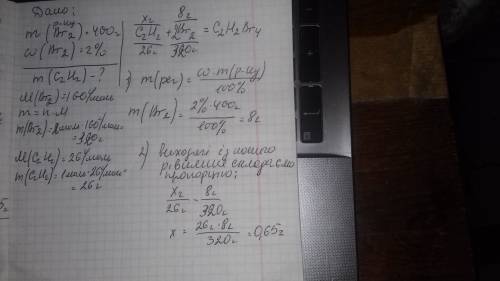 Дано:
m (р-ну Br₂) = 400г
ω (Br₂) = 2%
m (C₂H₂) - ?
M(Br₂) = 160г/моль
m = n·M
m(Br₂) = 2моль·160г/моль =
= 320г
M(C₂H₂) = 26г/моль
m(C₂H₂) = 1моль·26г/моль =
= 26г
xг 8г
C₂H₂ + 2Br₂ = C₂H₂Br₄
26г 320г
1) m(реч) = ω·m(р-ну) / 100%
m(Br₂) = 2%·400г / 100% = 8г
2) виходячи із нашого
рівняння складаємо
пропорцію:
xг / 26г = 8г / 320г
x = 26г·8г / 320г = 0,65г